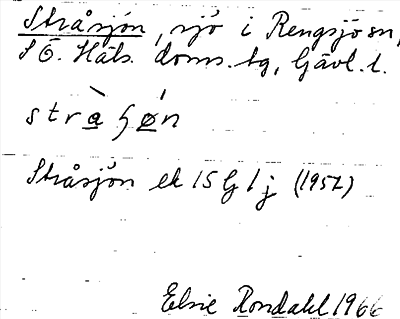 Stråsjön, sjö i Rengsjö sn,
S Ö. Häls. doms.tg, Gävl. l.
stràʃǿn
Stråsjön ek 15G 1j (1957)
Elsie Rondahl 1966